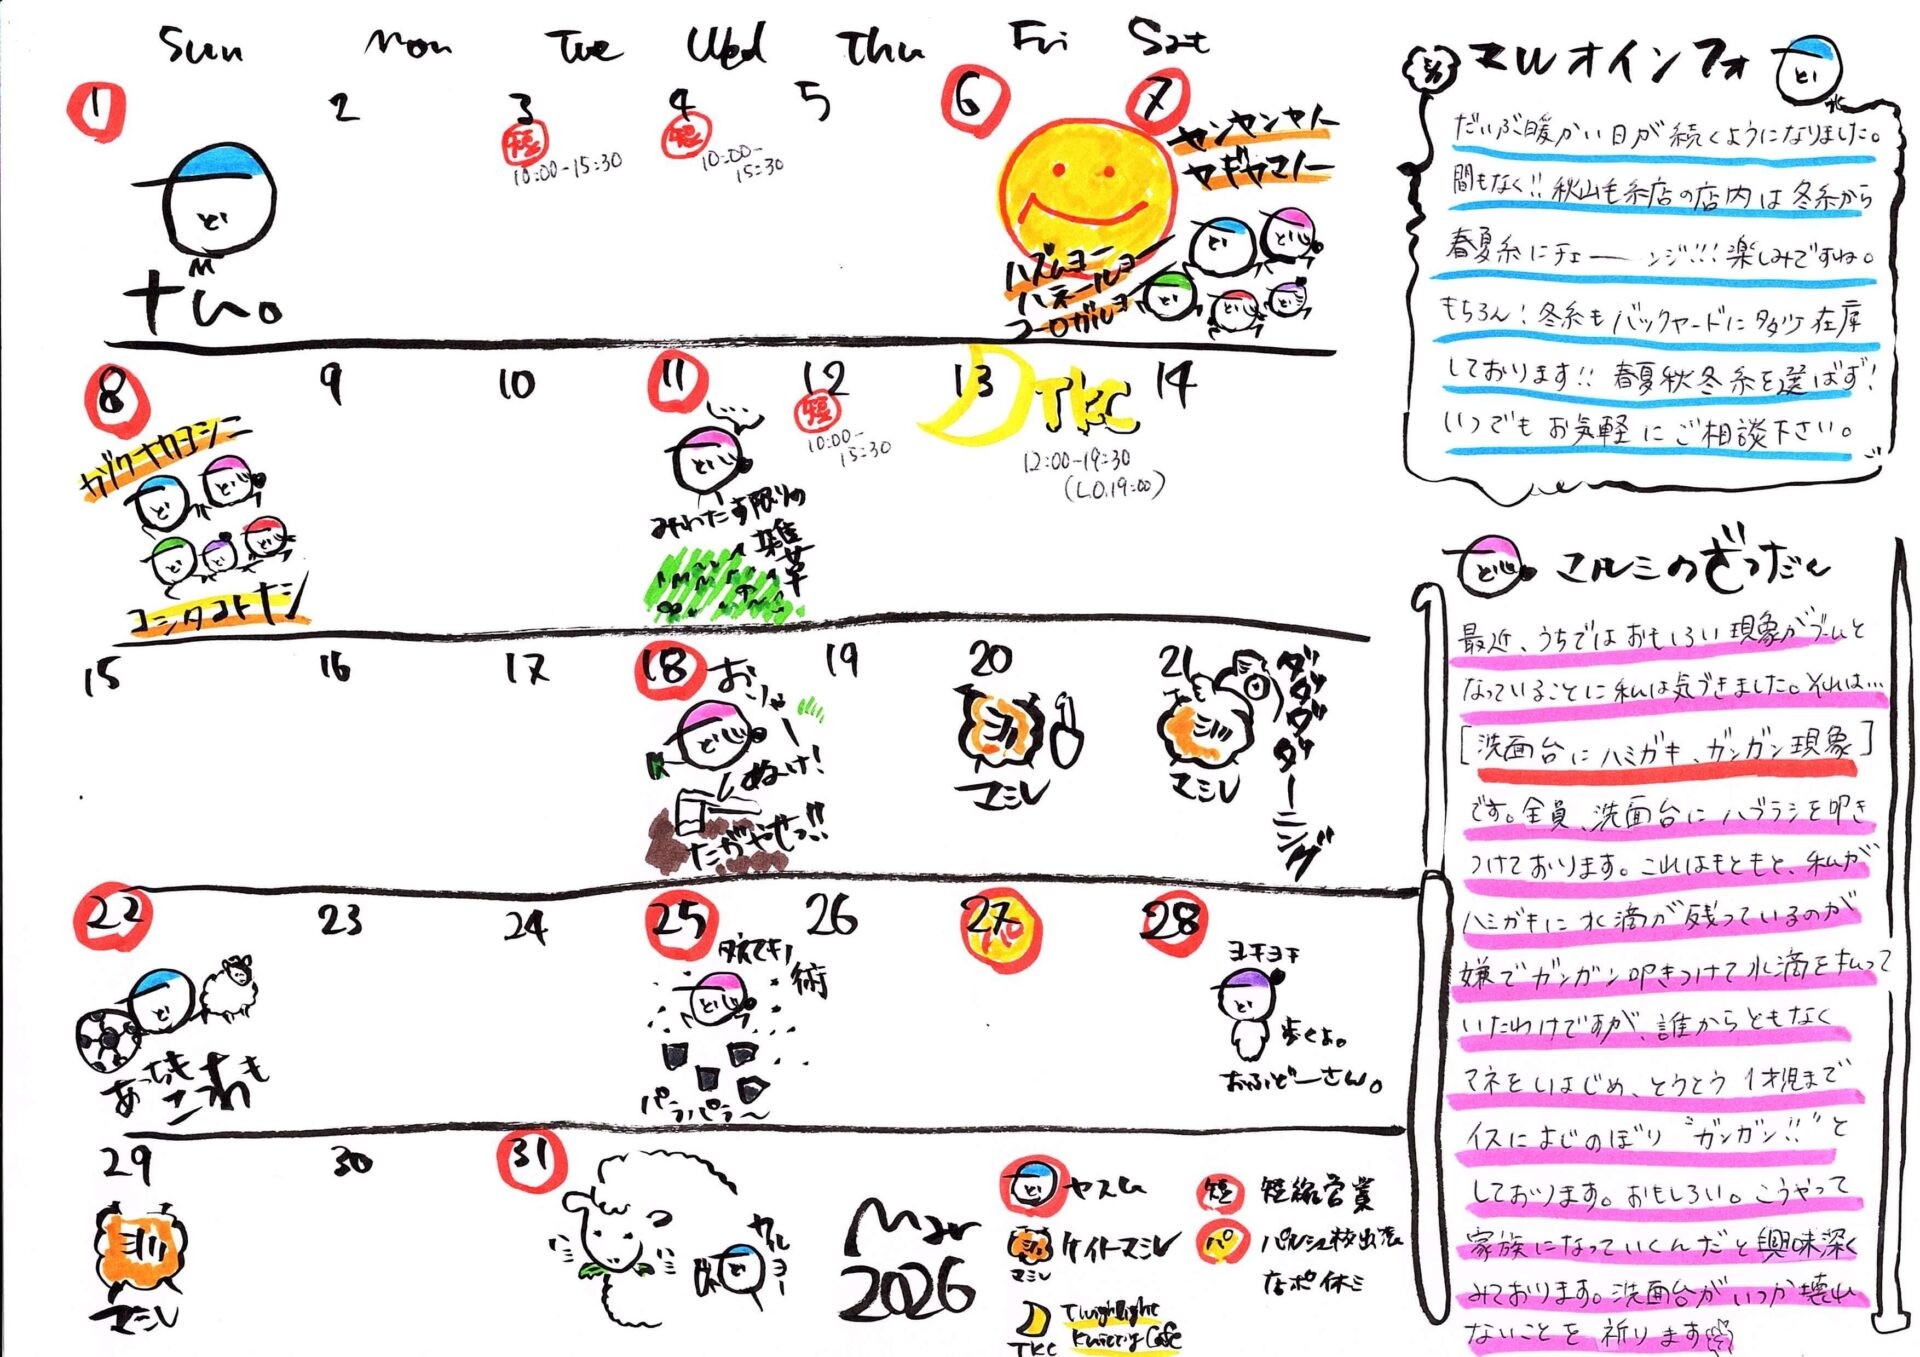 Sun Mon Tue Wed Thu Fri Sat
1 2 3 4 5 6 7
短 10:00-15:30
短 10:00-15:30
ヤンヤンヤノー
ヤギヤマノー
ハズムヨー
ハネールヨー
コーロガルヨ
8 9 10 11 12 13 14
カゾクナカヨシニ
コシタコトナシ
みわたす限りの
雑草
短 10:00-15:30
TKC
12:00-19:30
(L.O.19:00)
15 16 17 18 19 20 21
おりゃー
しぬけ!
たがやせっ!!
マミレ
マミレ
ダダダダダーニング
22 23 24 25 26 27 28
あっちもこっちも
術
パラパラ〜
パ
ヨチヨチ
歩くよ。
おふどーさん。
29 30 31
マミレ
Mar
2026
ヤスム
短 短縮営業
ケイトーマミレ
マミレ
パ パルシェ校出店
店ポ休ミ
TKC
Twighlight
Knitting Cafe
マルオインフォ
だいぶ暖かい日が続くようになりました。
間もなく!!秋山毛糸店の店内は冬糸から
春夏糸にチェーンジ!!!楽しみですね。
もちろん!冬糸もバックヤードにタタッケ在庫
しております!!春夏秋冬糸を選ばず!
いつでもお気軽にご相談下さい。
マルミのざつだん
最近、うちではおもしろい現象がブームと
なっていることに私は気づきました。それは…
[洗面台にハミガキ、ガンガン現象]
です。全員、洗面台にハブラシを叩き
つけております。これはもともと、私が
ハミガキに水滴が残っているのが
嫌でガンガン叩きつけて水滴を払って
いたわけですが、誰からともなく
マネをしはじめ、とうとう1才児まで
イスによじのぼり“ガンガン!!”と
しております。おもしろい。こうやって
家族になっていくんだと興味深く
みております。洗面台がいつか壊れ
ないことを祈ります